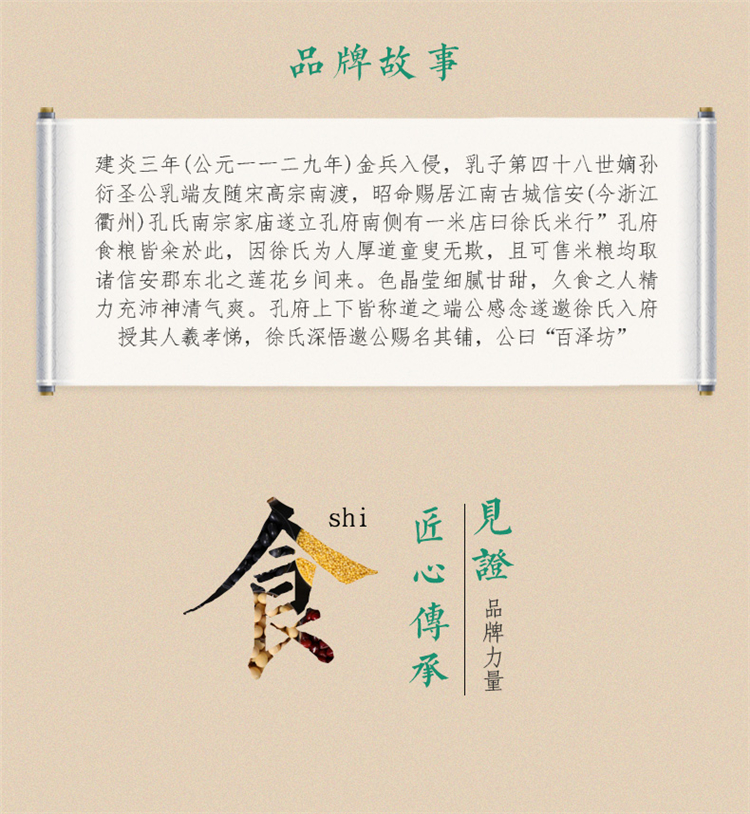 品牌故事
建炎三年(公元一一二九年)金兵入侵，乳子第四十八世嫡孙
衍圣公乳端友随宋高宗南渡，昭命赐居江南古城信安(今浙江
衢州)孔氏南宗家庙遂立孔府南侧有一米店曰徐氏米行”孔府
食粮皆籴於此，因徐氏为人厚道童叟无欺，且可售米粮均取
诸信安郡东北之莲花乡间来。色晶莹细腻甘甜，久食之人精
力充沛神清气爽。孔府上下皆称道之端公感念遂邀徐氏入府
授其人羲孝悌，徐氏深悟邀公赐名其铺，公曰“百泽坊”
食
shi
見證
品牌力量
匠心傳承